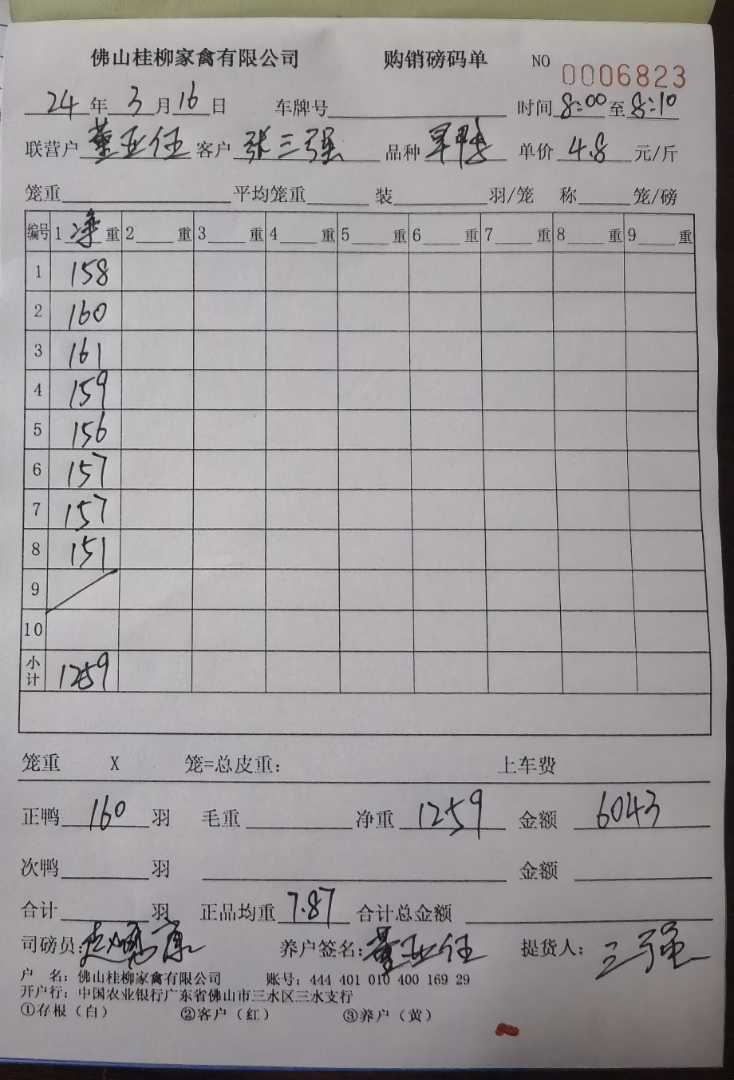 佛山桂柳家禽有限公司 购销磅码单 NO 0006823
24年3月16日 车牌号 时间8:00至8:10
联营户 董亚任 客户 张三强 品种 单价 4.8 元/斤
笼重 平均笼重 装 羽/笼 称 笼/磅
编号 1净重 2 重 3 重 4 重 5 重 6 重 7 重 8 重 9 重
1 158
2 160
3 161
4 159
5 156
6 157
7 157
8 151
9
10
小计 1259
笼重 X 笼=总皮重: 上车费
正鸭 160 羽 毛重 净重 1259 金额 6043
次鸭 羽 金额
合计 羽 正品均重 7.87 合计总金额
司磅员: 养户签名: 董亚任 提货人: 三强
户 名: 佛山桂柳家禽有限公司 账号: 444 401 010 400 169 29
开户行: 中国农业银行广东省佛山市三水区三水支行
①存根(白) ②客户(红) ③养户(黄)